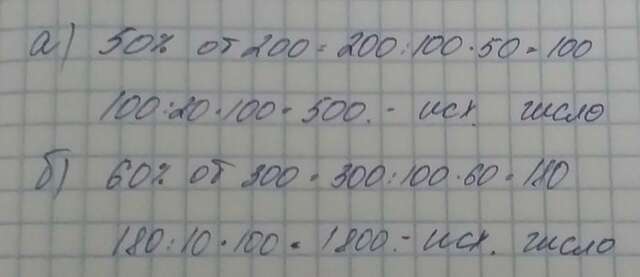 а) 50% от 200 = 200:100·50=100
100:20·100=500. - исх. число
б) 60% от 300 = 300:100·60=180
180:10·100=1800.- исх. число